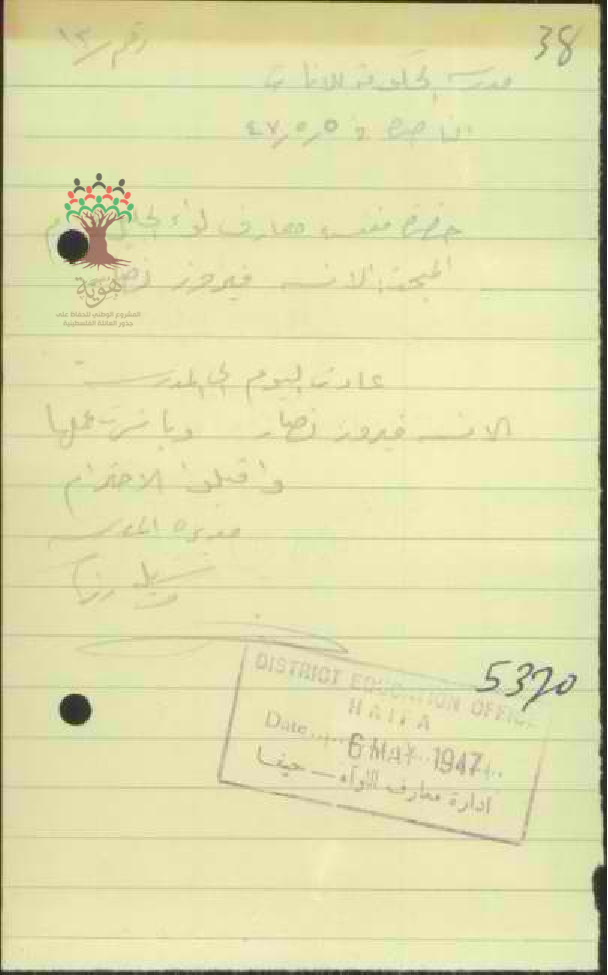 38
رقم /١٣
مدرسة الحكومة للاناث
الناصرة في ٤٧/٥/٥
حضرة مفتش معارف لواء الجليل
المبحث: الانسة فيروز نصار
هوية
المشروع الوطني للحفاظ على
جذور العائلة الفلسطينية
عادت اليوم الى المدرسة
الانسة فيروز نصار وباشرت عملها
واقبلوا الاحترام
مديرة المدرسة
5370
DISTRICT EDUCATION OFFICE
HAIFA
Date 6 MAY 1947
ادارة معارف اللوآء — حيفا